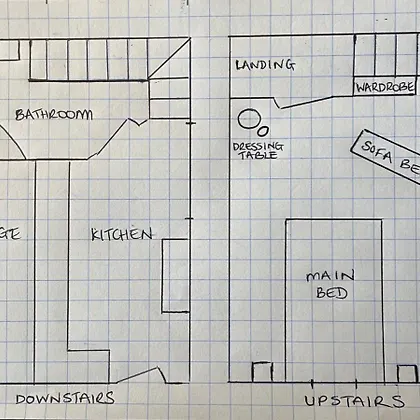 LANDING
WARDROBE
BATHROOM
DRESSING
TABLE
SOFA BE
GE
KITCHEN
MAIN
BED
DOWNSTAIRS
UPSTAIRS